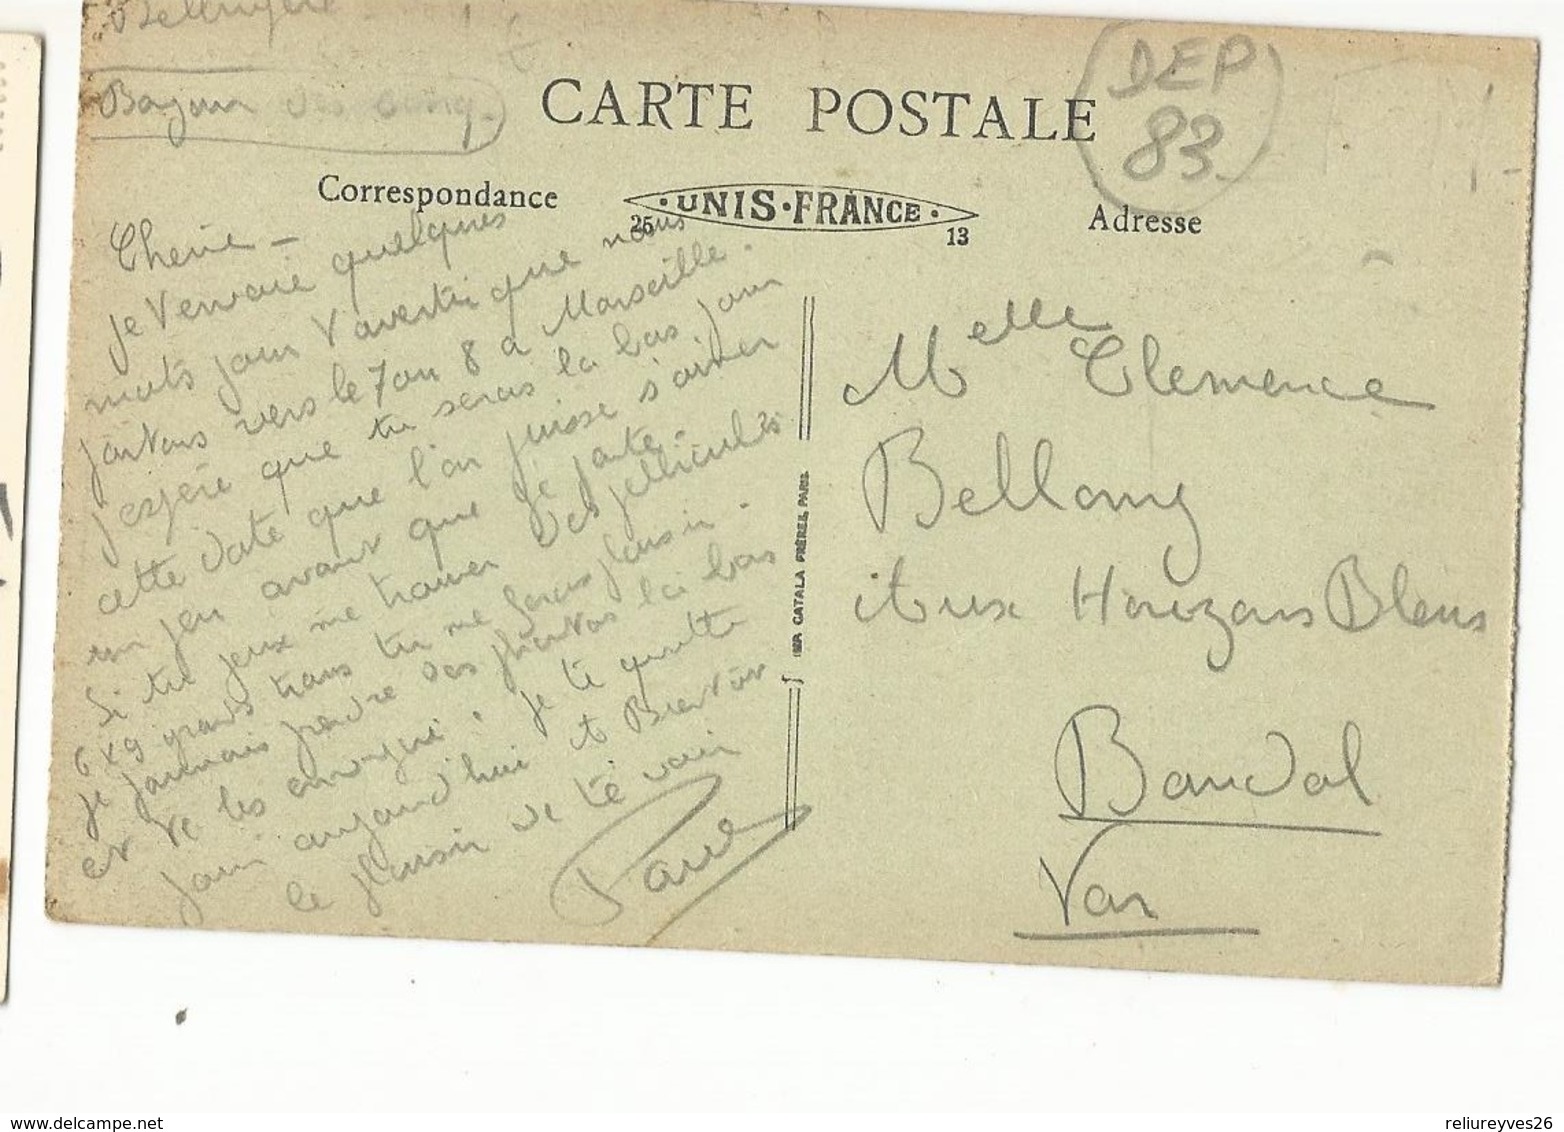 Bonjour des
CARTE POSTALE
DEP
83
Correspondance
UNIS-FRANCE
25 13
Adresse
Cherie -
je t'envoie quelques
mots pour t'avertir que nous
partons vers le 7 ou 8 a Marseille.
j'espère que tu seras la bas pour
cette date que l'on puisse s'aimer
un peu avant que je parte.
Si tu peux me trouver des pellicules
6x9 grands tu me feras plaisir.
je pourrais prendre des photos la bas
et te les envoyer. je te quitte
pour aujourd'hui et Bientôt
le plaisir de te voir
Paul
IMP. CATALA FRÈRES, PARIS
Melle Clemence
Bellomy
Aux Horizons Bleus
Bandol
Var
www.delcampe.net
reliureyves26